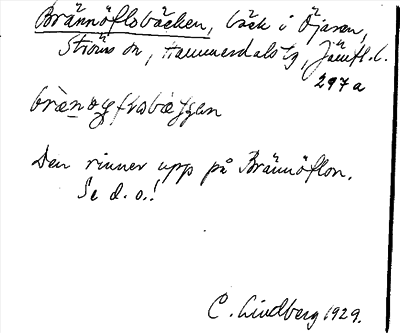 Brännöflobäcken, bäck i Öjaren,
Ströms sn, Hammerdals tg, Jämtl. l.
297a
Den rinner upp på Brännöflon.
Se d. o.!
C. Lindberg 1929.